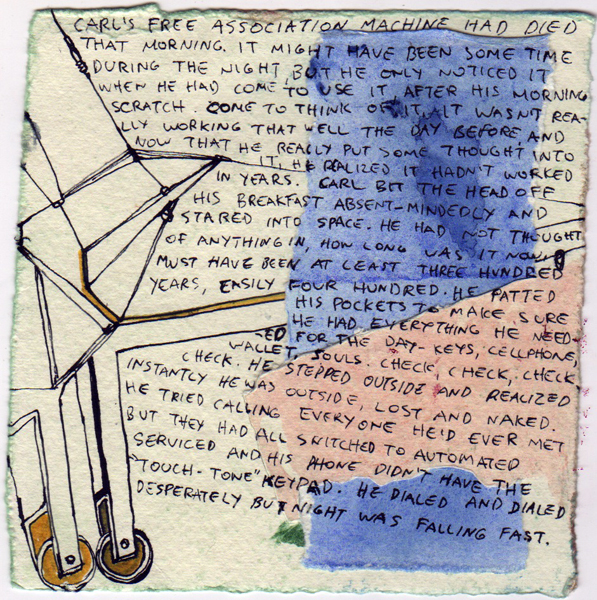 CARL'S FREE ASSOCIATION MACHINE HAD DIED
THAT MORNING. IT MIGHT HAVE BEEN SOME TIME
DURING THE NIGHT, BUT HE ONLY NOTICED IT
WHEN HE HAD COME TO USE IT, AFTER HIS MORNING
SCRATCH. COME TO THINK OF IT, IT WASN'T REA-
LLY WORKING THAT WELL THE DAY BEFORE, AND
NOW THAT HE REALLY PUT SOME THOUGHT INTO
IT, HE REALIZED IT HADN'T WORKED
IN YEARS. CARL BIT THE HEAD OFF
HIS BREAKFAST ABSENT-MINDEDLY AND
STARED INTO SPACE. HE HAD NOT THOUGHT
OF ANYTHING IN, HOW LONG WAS IT NOW,
MUST HAVE BEEN AT LEAST THREE HUNDRED
YEARS, EASILY FOUR HUNDRED. HE PATTED
HIS POCKETS TO MAKE SURE
HE HAD EVERYTHING HE NEED-
ED FOR THE DAY- KEYS, CELLPHONE,
WALLET, SOULS. CHECK, CHECK, CHECK,
CHECK. HE STEPPED OUTSIDE AND REALIZED
INSTANTLY HE WAS OUTSIDE, LOST AND NAKED.
HE TRIED CALLING EVERYONE HE'D EVER MET
BUT THEY HAD ALL SWITCHED TO AUTOMATED
SERVICED AND HIS PHONE DIDN'T HAVE THE
"TOUCH-TONE" KEYPAD. HE DIALED AND DIALED
DESPERATELY BUT NIGHT WAS FALLING FAST.